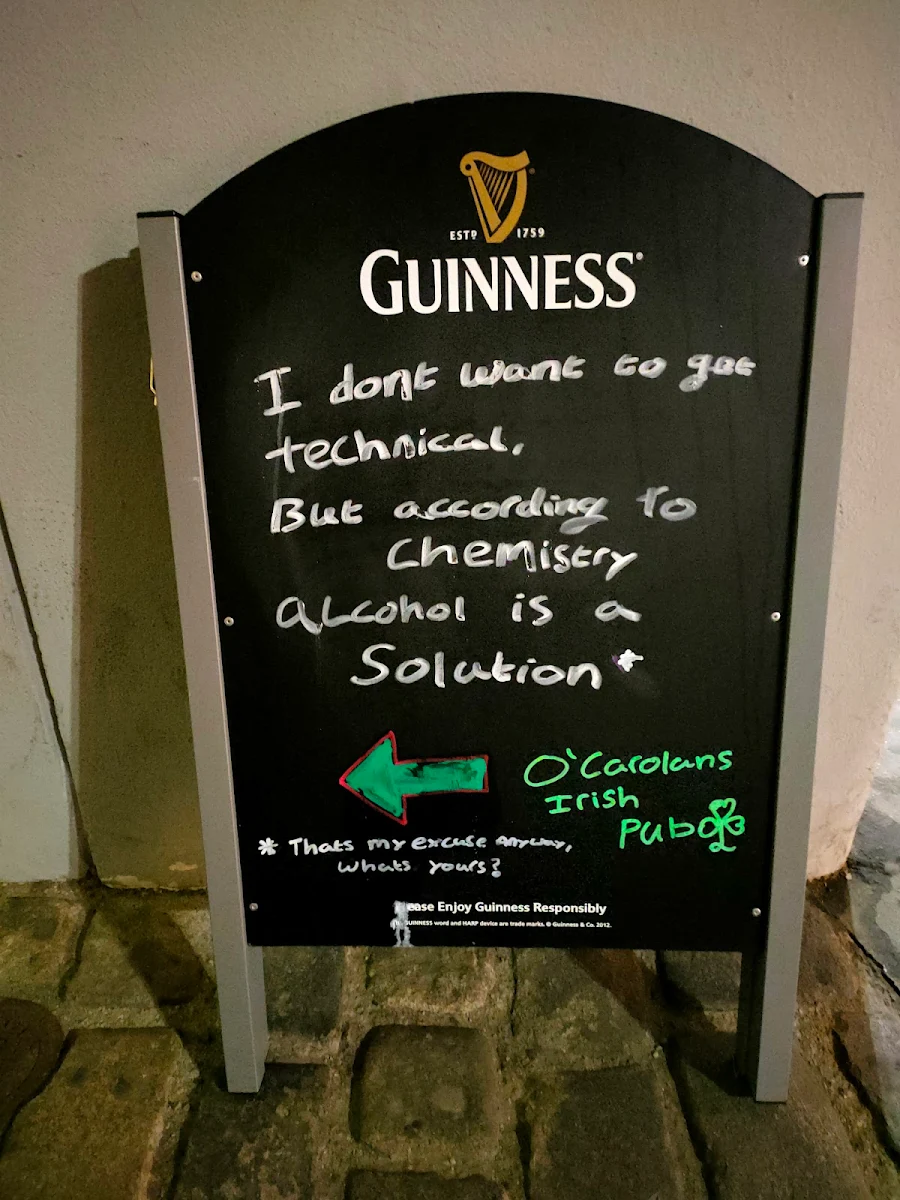 ESTD 1759
GUINNESS
I dont want to get
technical,
But according To
Chemistry
aLcohol is a
Solution*
O'Carolans
Irish
Pub
* Thats my excuse anyway,
whats yours?
ease Enjoy Guinness Responsibly
GUINNESS word and HARP device are trade marks. © Guinness & Co. 2012.